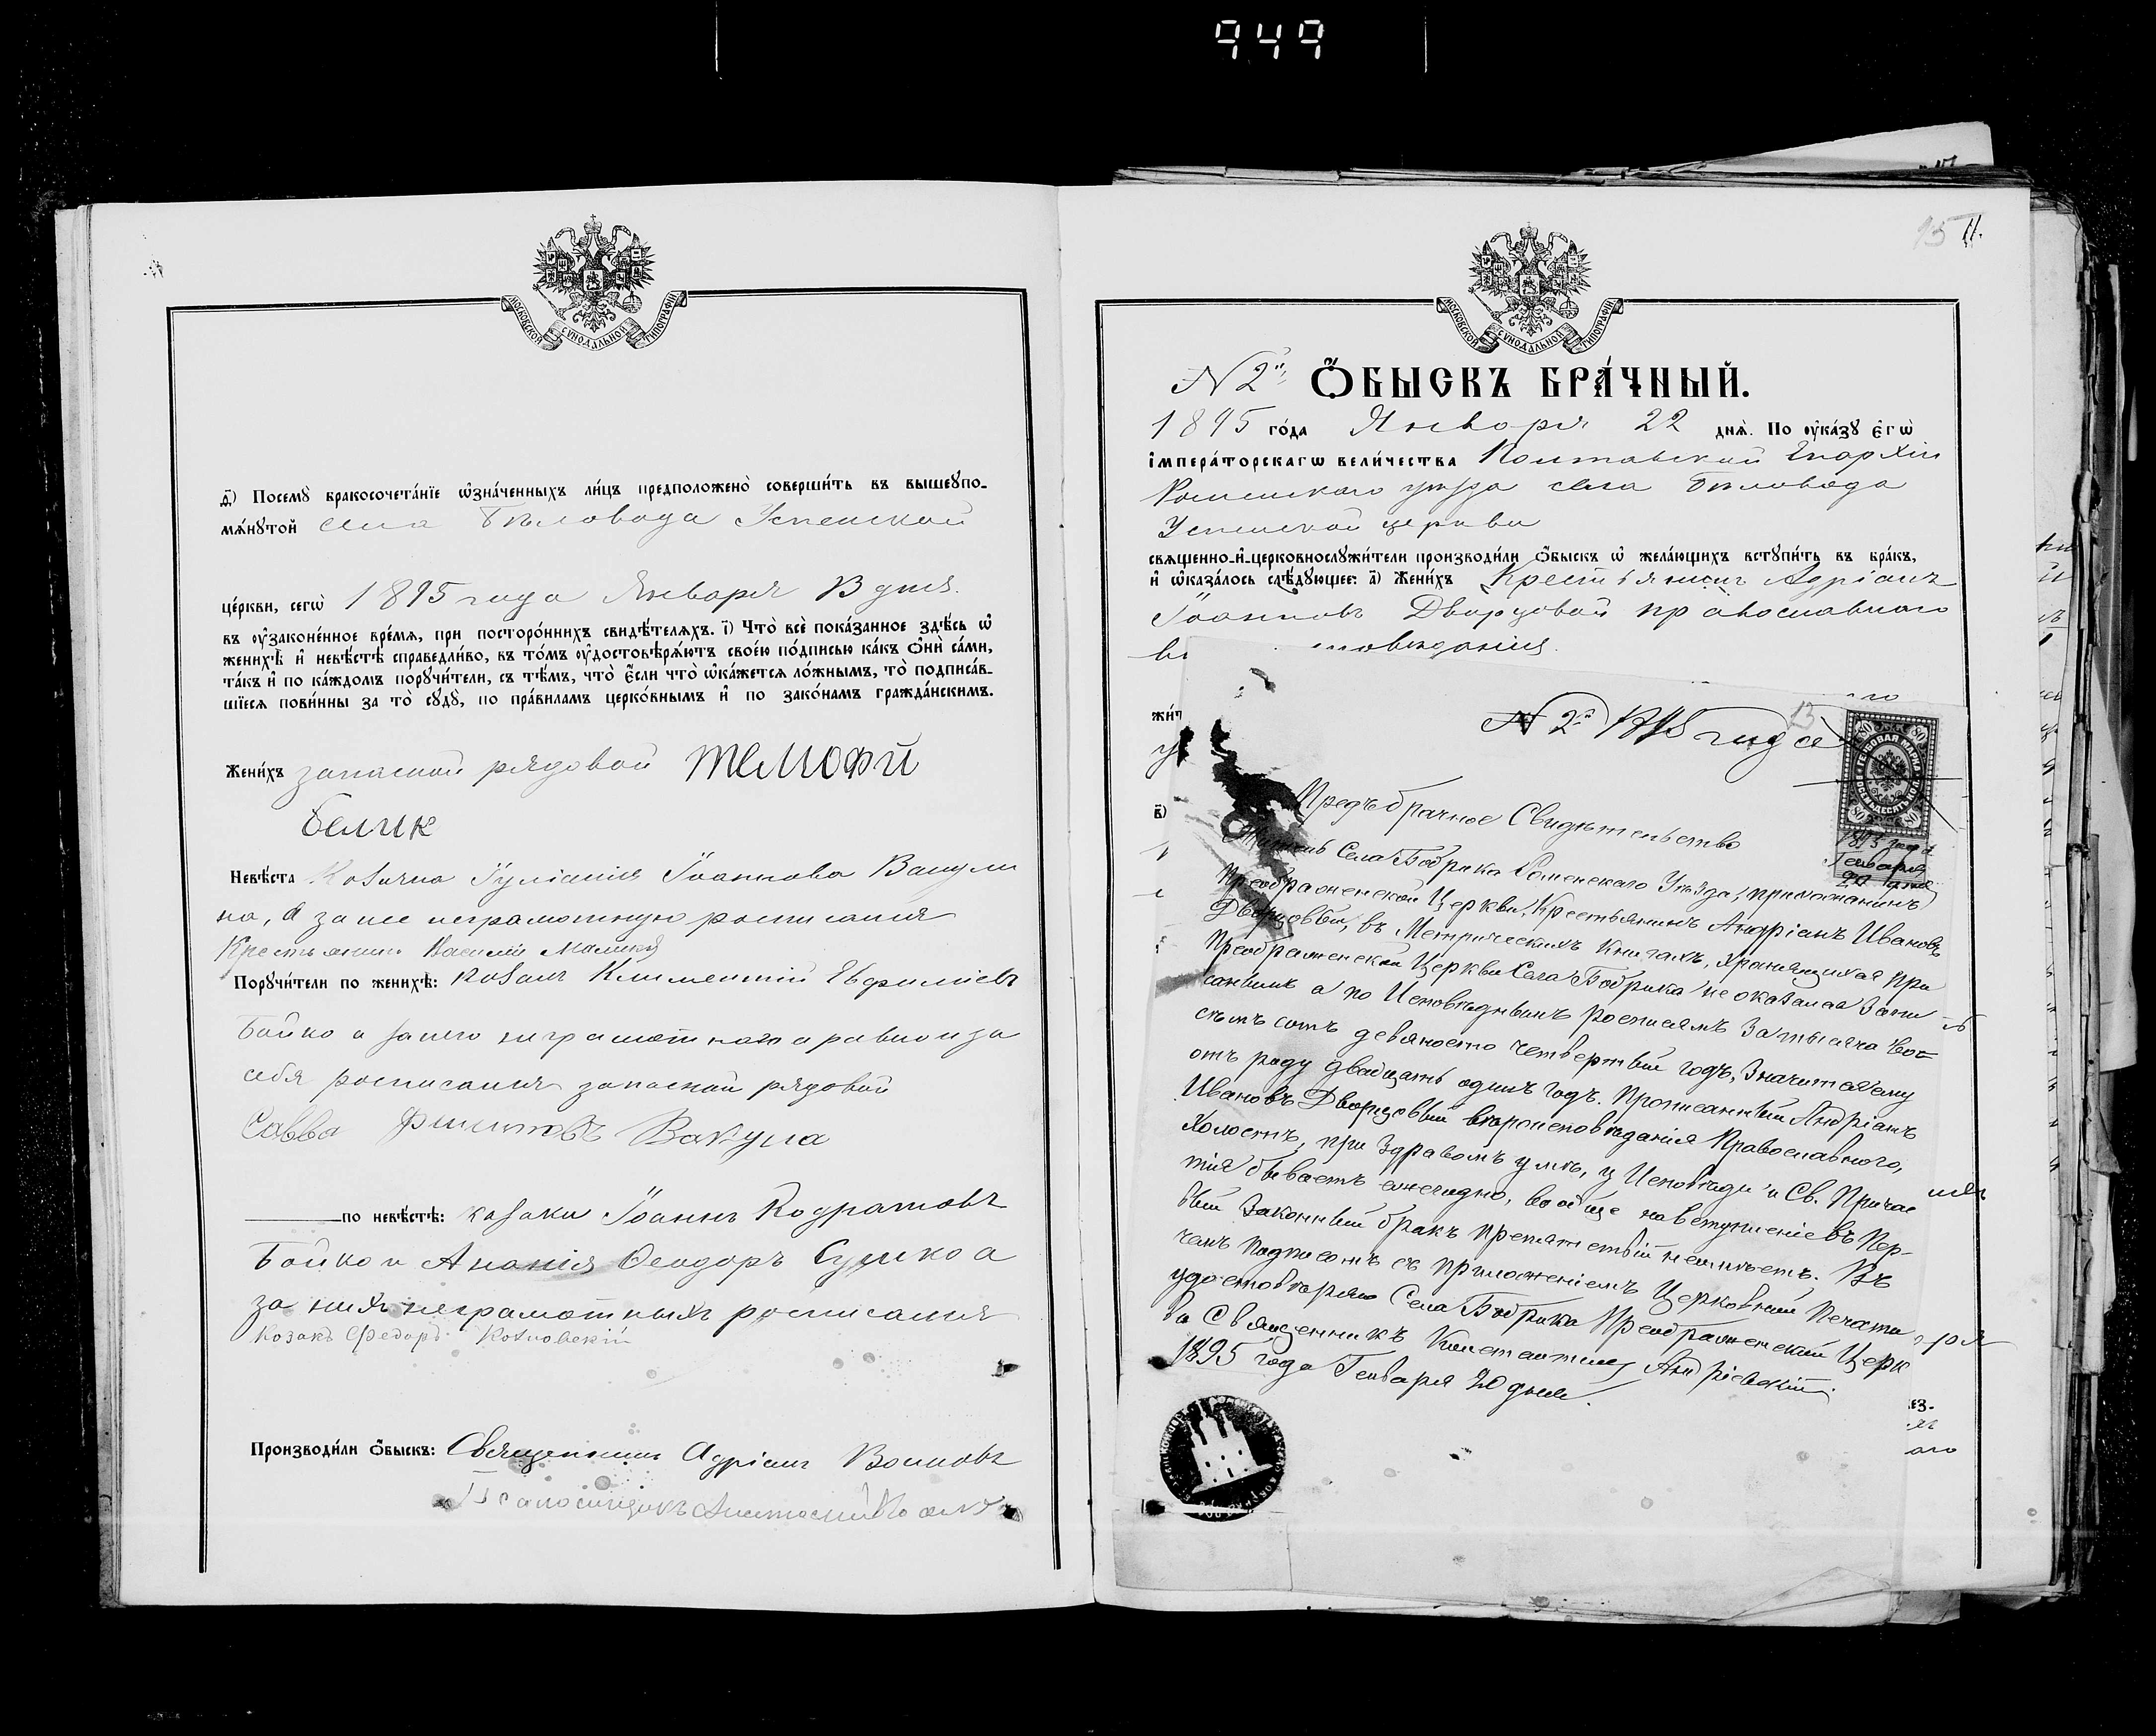 949
МОСКОВСКОЙ СѴНОДАЛЬНОЙ ТИПОГРАФІИ
д҃і) Посемꙋ̀ бракосочета́нїе ѡ҆зна́ченныхъ ли́цъ предположено̀ соверши́ть въ вышеꙋпо-
мѧ́нꙋтой села Бѣловода Успенской
це́ркви, сегѡ̀ 1895 года Января 13 дня.
въ ᲂу҆законе́нное вре́мѧ, при посторо́ннихъ свидѣ́телѧхъ. і҃) Что̀ всѐ пока́занное здѣ́сь ѡ҆
женихѣ̀ и҆ невѣ́стѣ справедли́во, въ то́мъ ᲂу҆достовѣрѧ́ютъ свое́ю по́дписью ка́къ ѻ҆нѝ са́ми,
та́къ и҆ по ка́ждомъ порꙋчи́тели, съ тѣ́мъ, что̀ є҆́сли что̀ ѡ҆ка́жетсѧ ло́жнымъ, то̀ подписа́в-
шїесѧ пови́нны за то̀ сꙋдꙋ̀, по пра́виламъ церко́внымъ и҆ по зако́намъ гражда́нскимъ.
Жени́хъ запасной рядовой Темофй
Белик
Невѣ́ста Козачка Іуліанія Іоаннова Вакули
на, а за нее неграмотную росписался
Крестьянинъ Василій
Порꙋчи́тели по женихѣ̀: козакъ Климентій Евфиміевъ
Бойко а за него неграмотного а равно и за
себя росписался запасной рядовой
Савва Филиповъ Вакула
по невѣ́стѣ: козаки Іоаннъ Кодратовъ
Бойко и Ананія Ѳеодоръ Сушко а
за нихъ неграмотныхъ росписался
Козакъ Федоръ Козловскій
Производи́ли ѻ҆́быскъ: Священникъ Адріанъ Воиновъ
Псаломщикъ
15 11.
МОСКОВСКОЙ СѴНОДАЛЬНОЙ ТИПОГРАФІИ
N 2й Ѻ҆́БЫСКЪ БРА́ЧНЫЙ.
1895 го́да Января 22 днѧ̀. По ᲂу҆ка́зꙋ є҆гѡ̀
і҆мпера́торскагѡ вели́чества Полтавской Епархіи
Роменскаго уѣзда села Бѣловода
Успенской церкви
свѧщенно-и҆-церковнослꙋжи́тели производи́ли ѻ҆́быскъ ѡ҆ жела́ющихъ встꙋпи́ть въ бра́къ,
и҆ ѡ҆каза́лось слѣ́дꙋющее: а҃) Жени́хъ Крестьянинъ Адріанъ
Іоанновъ Дворцовой православнаго
исповѣданія.
жи́т
в҃)
N 2й 1895 года
13
80 80
ГЕРБОВАЯ МАРКА ВОСЕМЬДЕСЯТЪ КОП.
80 80
1895 года
Генваря
20 дня
Предъбрачное Свидѣтельство
Житель Села Бобрика Роменскаго Уѣзда, прихожанинъ
Преображенской Церкви, Крестьянинъ Андріанъ Ивановъ
Дворцовый, въ Метрическихъ Книгахъ, хранящихся при
Преображенской Церкви Села Бобрика не оказался Запи
саннымъ а по Исповѣднымъ росписямъ За тысяча Во=
съмъ сотъ девяносто четвертый годъ, Значится ему
отъ роду двадцать одинъ годъ. Прописанный Андріанъ
Ивановъ Дворцовый вѣроисповѣданія Православного,
Холостъ, при Здравомъ умѣ, у Исповѣди и Св. Причас
тія бываетъ ежегодно, вообще на вступленіе въ Пер-
вый Законный бракъ препятствій неимѣетъ. Въ
чемъ подписомъ съ приложеніемъ Церковной Печати
удостовѣряю Села Бобрика Преображенской Церк
ви Священникъ Константинъ Андріевскій.
1895 года Генваря 20 дня.